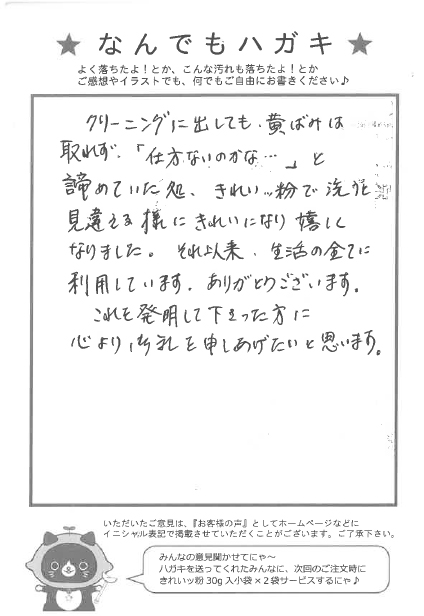 ★ なんでもハガキ ★
よく落ちたよ！とか、こんな汚れも落ちたよ！とか
ご感想やイラストでも、何でもご自由にお書きください♪
クリーニングに出しても、黄ばみは
取れず、「仕方ないのかな…」と
諦めていた処、きれいッ粉で洗うと
見違える様にきれいになり嬉しく
なりました。それ以来、生活の全てに
利用しています。ありがとうございます。
これを発明して下さった方に
心より御礼を申しあげたいと思います。
いただいたご意見は、『お客様の声』としてホームページなどに
イニシャル表記で掲載させていただくことがございます。ご了承下さい。
みんなの意見聞かせてにゃ～
ハガキを送ってくれたみんなに、次回のご注文時に
きれいッ粉30g入小袋×2袋サービスするにゃ♪